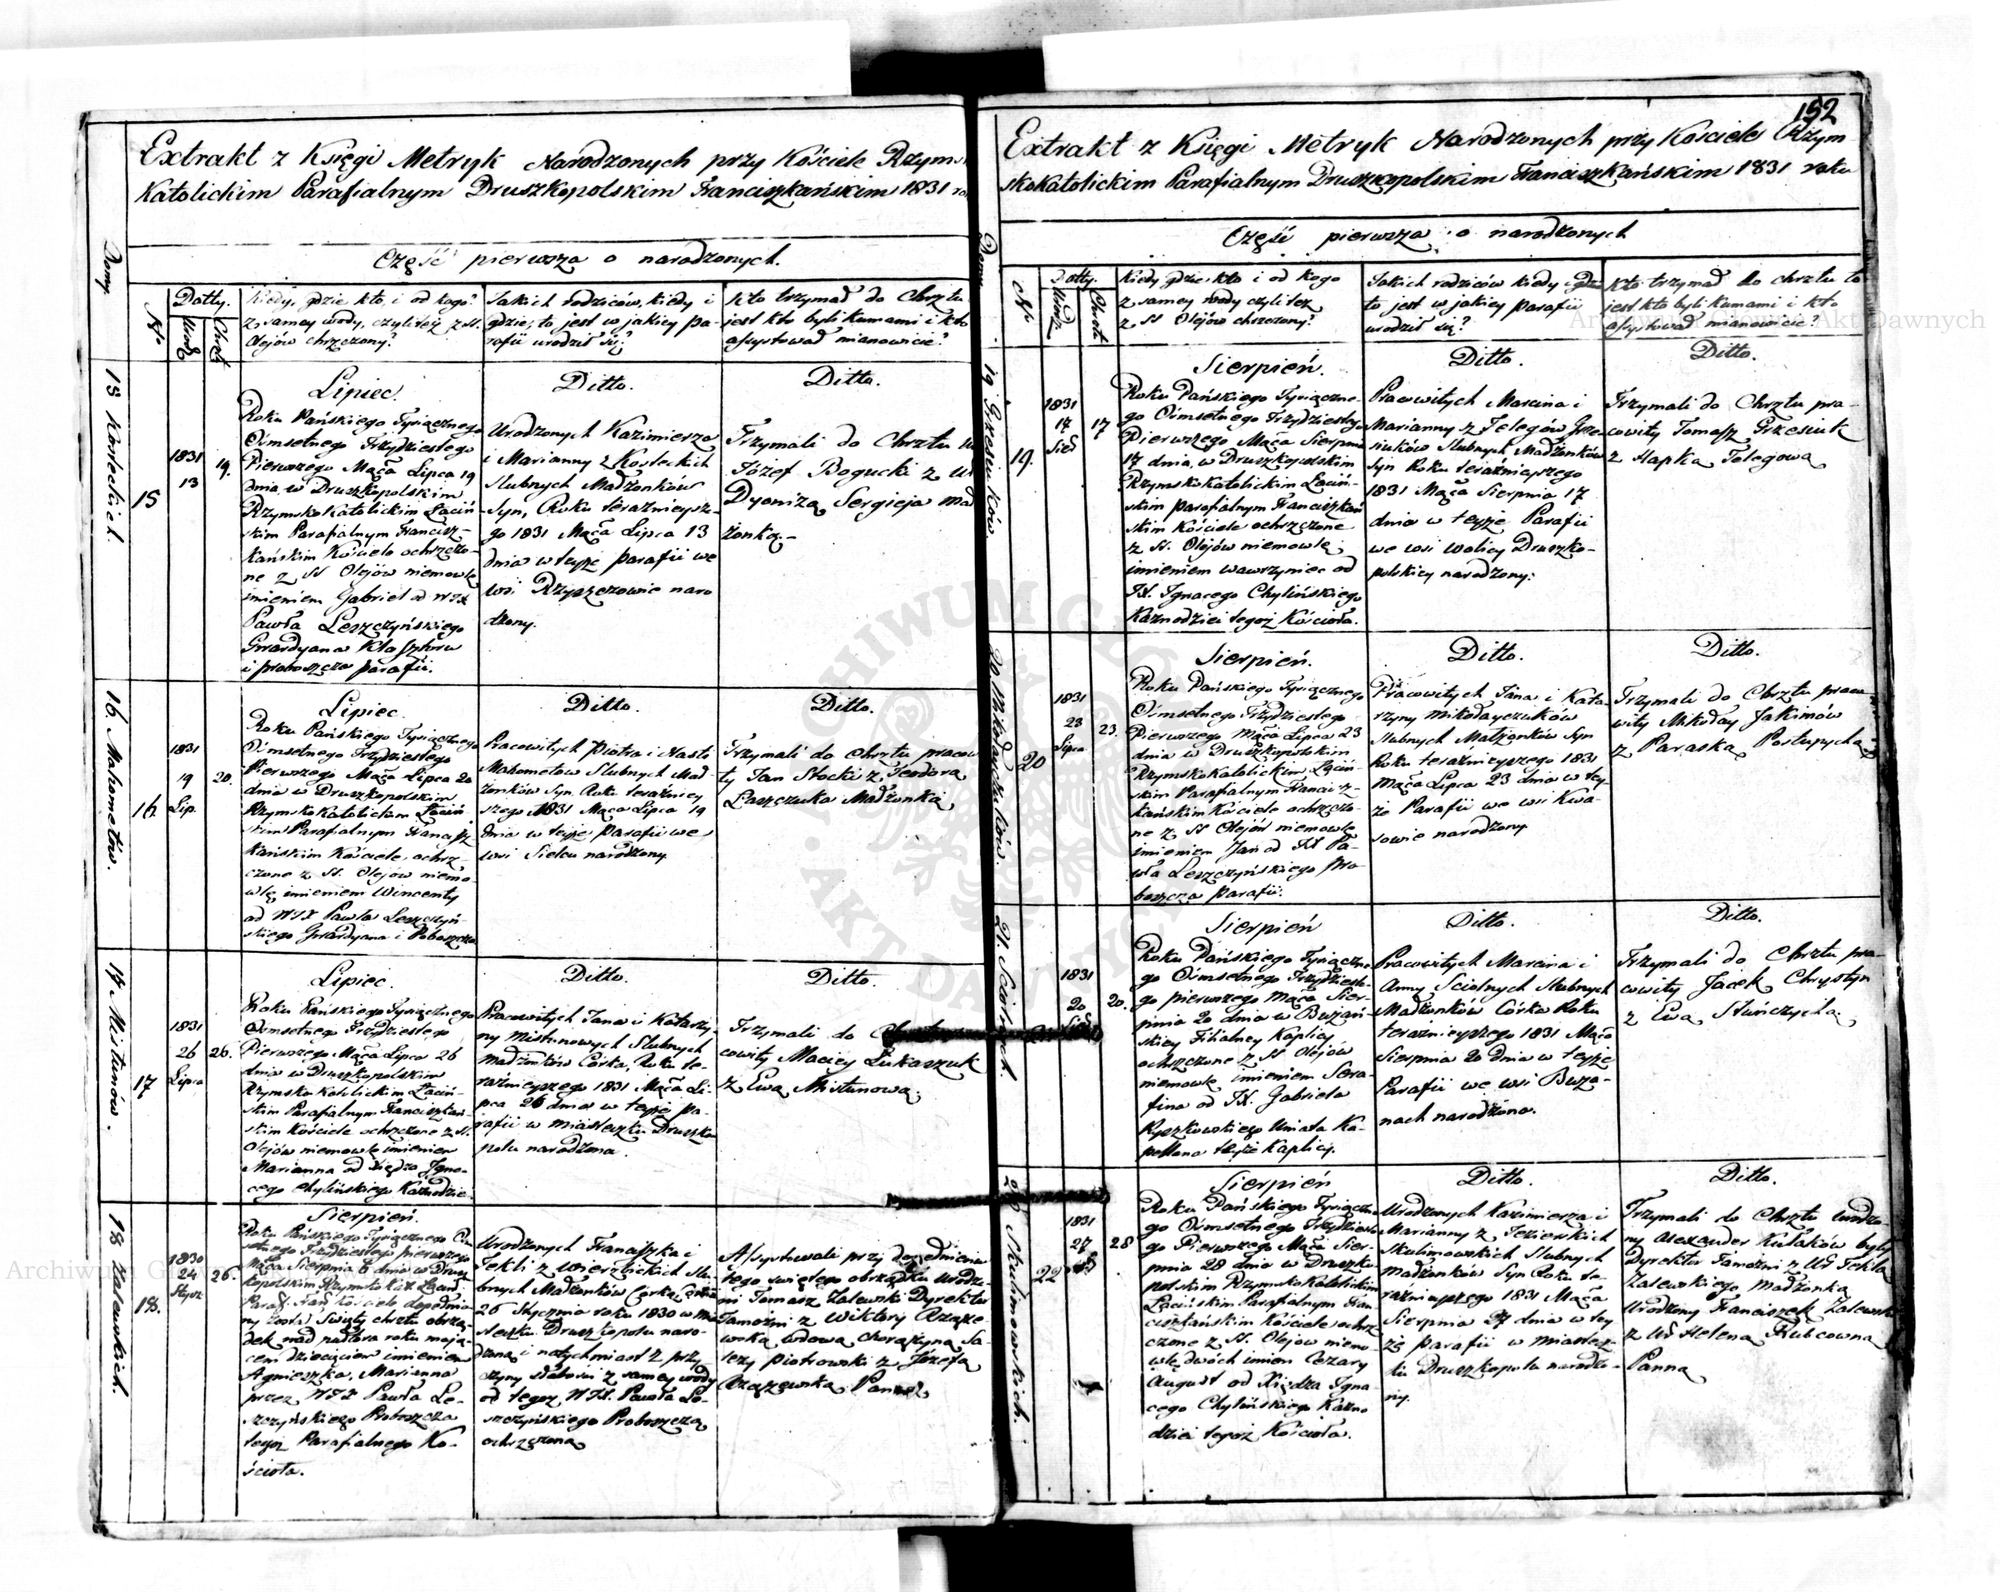 Extrakt z Księgi Metryk Narodzonych przy Kościele Rzyms
Katolickim Parafialnym Druszkopolskim Franciszkańskim 1831 ro
Część pierwsza o narodzonych.
Domy
Nr.
Datty.
Urodz
Chrzt
Kiedy, gdzie kto, i od kogo?
z samey wody, czyli też z SS.
Olejów chrzczony?
Jakich rodziców, kiedy i
gdzie, to jest w jakiey pa-
rafii urodził się?
Kto trzymał do Chrztu
jest kto byli kumami i kto
assystował mianowicie?
15
1831
13
19.
Lipiec.
Roku Pańskiego Tysiącznego
Osmsetnego Trzydziestego
Pierwszego Mąca Lipca 19
dnia w Druszkopolskim
Rzymsko Katolickim Łaciń
skim Parafialnym Francisz-
kańskim Kościele ochrzczo-
ne z SS Olejów niemowle
imieniem Gabriel od WJX
Pawła Leszczyńskiego
Gwardyana Klasztoru
i proboszcza parafii.
Ditto.
Urodzonych Kazimierza
i Marianny z
Slubnych Madżonków
Syn, Roku teraźnieysze-
go 1831 Mąca Lipca 13
dnia w teyże parafii we
wsi Rzyszczowie naro
dzony.
Ditto.
Trzymali do Chrztu
Józef Bogucki z
Dyonizą Sergieja Mał
żonką.-
16. Mahometów.
16
1831
19
Lip.
20.
Lipiec.
Roku Pańskiego Tysiącznego
Osmsetnego Trzydziestego
Pierwszego Mąca Lipca 20
dnia w Druszkopolskim
Rzymsko Katolickim Łaciń
skim Parafialnym Francisz
kańskim Kościele, ochrz-
czone z SS. Olejów niemo-
wlę imieniem Wincenty
od WJX Pawła Leszczyń-
skiego Gwardyana i Proboszcza
Ditto.
Pracowitych Piotra i Nasti
Mahometow Slubnych Mał-
żonków Syn Roku teraźniey
szego 1831 Mąca Lipca 19
dnia w teyże parafii we
wsi Sielcu narodzony.
Ditto.
Trzymali do chrztu pracow
ty Jan Stocki z Teodorą
Łaszczuka Madżonką
17 Mistunów.
17
1831
26
Lipca
26.
Lipiec.
Roku Pańskiego Tysiącznego
Osmsetnego Trzydziestego
Pierwszego Mąca Lipca 26
dnia w Druszkopolskim
Rzymsko Katolickim Łaciń-
skim Parafialnym Franciszkań-
skim Kościele ochrzczone z SS.
Olejów niemowle imieniem
Marianna od Xiędza Igna-
cego Chylińskiego Kaznodzie.
Ditto.
Pracowitych Jana i Katarzy-
ny Mistunowych Slubnych
Madżonków Córka, Roku te-
raźnieyszego 1831 Mąca Li-
pca 26 dnia w teyże pa-
rafii w miasteczku Druszko
polu narodzona.
Ditto.
Trzymali do
cowity Maciey Łukaszuk
z Ewą Mistunową.
18 Zalewskich.
18.
1830
24
Stycz
26.
Sierpień.
Roku Pańskiego Tysiącznego
setnego Trzydziestego pierwszego
Mąca Sierpnia 6 dnia w Drusz
kopolskim
Kościele dopełnio
ny został Swięty chrztu obrzą
dek nad półtora roku mają-
cem dziecięciem imieniem
Agnieszka, Marianna
przez WJX Pawła Le-
szczyńskiego Proboszcza
tegoż Parafialnego Ko-
ścioła.
Urodzonych Franciszka i
Tekli z Wierzbickich Slu-
bnych Madżonków Corka,
26 Stycznia roku 1830 w mia
steczku Druszkopolu naro-
dzona, i natychmiast z przy-
czyny słabości z samey wody
od tegoż WJX. Pawła Le-
szczyńskiego Proboszcza
ochrzczona
Assystowali przy dopełnieniu
tego swiętego obrządku Urodzo
ni Tomasz Zalewski Dyrektor
Tamożni z Wiktoryą
wdową
Piotrowski z Józefą
Panną.
152
Extrakt z Księgi Metryk Narodzonych przy Kościele Rzym-
skokatolickim Parafialnym Druszkopolskim Franciszkańskim 1831 roku
Część pierwsza o narodzonych
Domy
Nr.
Datty.
Urodz
Chrzt
Kiedy gdzie kto i od kogo
z samey wody czyli też
z SS Olejów chrzczony?
Jakich rodziców kiedy i gdzie
to jest w jakiey parafii
urodził się?
Kto trzymał do chrztu to
jest kto byli kumami i kto
assystował mianowicie?
19 Grzesiuków.
19.
1831
17
Sier
17
Sierpień.
Roku Pańskiego Tysiączne-
go Osmsetnego Trzydziestego
Pierwszego Mąca Sierpnia
17 dnia, w Druszkopolskim
Rzymsko Katolickim Łaciń-
skim parafialnym Franciszkań
skim Kościele ochrzczone
z SS. Olejów niemowle
imieniem Wawrzyniec od
JX. Ignacego Chylińskiego
Kaznodziei tegoż Kościoła.
Ditto.
Pracowitych Marcina i
Marianny z Telegów Grze-
siuków Slubnych Madżonków
Syn Roku teraźnieyszego
1831 Mąca Sierpnia 17
dnia w teyże Parafii
we wsi Wolicy Druszko-
polskiey narodzony.
Ditto.
Trzymali do Chrztu pra-
cowity Tomasz Grzesiuk
z Hapką Telegową
20 Mikołayczuków.
20
1831
23
Lipca
23.
Sierpień.
Roku Pańskiego Tysiącznego
Osmsetnego Trzydziestego
Pierwszego Mąca Lipca 23
dnia w Druszkopolskim
Rzymsko Katolickim Łaciń-
skim Parafialnym Francisz-
kańskim Kościele ochrzczo-
ne z SS Olejów niemowle
imieniem Jan od JX Pa-
wła Leszczyńskiego Pro-
boszcza parafii.
Ditto.
Pracowitych Jana i Kata-
rzyny Mikołayczuków
Slubnych Małżonków Syn
Roku teraźnieyszego 1831
Mąca Lipca 23 dnia w tey
że Parafii we wsi Kwa-
sowie narodzony.
Ditto.
Trzymali do Chrztu praco-
wity Mikołay Jakimów
z Paraską Postupychą
21.
1831
20
20.
Sierpień
Roku Pańskiego Tysiączne-
go Osmsetnego Trzydzieste-
go pierwszego Mąca Sier-
pnia 20 dnia w Bużań-
skiey Filialney Kaplicy
ochrzczone z SS Olejów
niemowle imieniem Sera-
fina od JX. Gabriela
Ryszkowskiego Uniata Ka-
pellana teyże Kaplicy.
Ditto.
Pracowitych Marcina i
Anny Sciolnych Slubnych
Madżonków Córka Roku
teraznieyszego 1831 Mąca
Sierpnia 20 dnia w teyże
Parafii we wsi Buża-
nach narodzona.
Ditto.
Trzymali do Chrztu pra-
cowity Jacek Chrystyn
z Ewą Stuńczychą.
22 Skulimowskich.
22
1831
27
28
Sierpień
Roku Pańskiego Tysiączne-
go Osmsetnego Trzydzieste
go Pierwszego Mąca Sier-
pnia 28 dnia w Druszko-
polskim Rzymsko Katolickim
Łacińskim Parafialnym Fran
ciszkańskim Kościele ochrz
czone z SS. Olejów niemo-
wle dwóch imion Cezary
August od Xiędza Igna-
cego Chylińskiego Kazno
dziei tegoż Kościoła.
Ditto.
Urodzonych Kazimierza i
Marianny z Jezierskich
Skulimowskich Slubnych
Madżonków Syn Roku te-
raźnieyszego 1831 Mąca
Sierpnia 27 dnia w tey
że parafii w miastecz-
ku Druszkopolu narodzo-
ny.
Ditto.
Trzymali do Chrztu Urodzo
ny Alexander Kułaków były
Dyrektor Tamożni z UI Teklą
Zalewskiego Madżonką
Urodzony Franciszek Zalewski
z UI Heleną
Panną
Archiwum Główne Akt Dawnych
ARCHIWUM GŁÓWNE AKT DAWNYCH